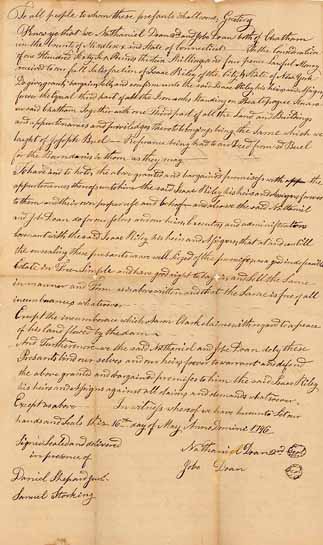 To all people to whom these presents shall come, Greeting
Know ye that we Nathaniel Doan and Job Doan both of Chatham
in the County of Middlesex and State of Connecticut In the Consideration
of One Hundred Sixty Pounds thirteen Shillings four pence Lawful Money
received to our full Satisfaction of Isaac Riley of the City & State of New York
Do give, grant, bargain, sell, and confirm unto the said Isaac Riley his heirs and Assigns
forever the Equal third part of all the Standing on
in said Chatham Together with one Third part of all the Land and Buildings
and appurtenances and priviledges thereto belonging being the Same which we
bought of Joseph Buel Referance being had to Deed from Buel
for the Boundaries to them as they may
To have and to hold, the above granted and bargained premises with the
appurtenances thereof unto him the said Isaac Riley his heirs and Assigns forever
to them and their own proper use and behoof and also we the said Nathaniel
and Job Doan do for ourselves and our heirs Executors and administrators
Covenant with the said Isaac Riley his heirs and Assignes that at and untill
the ensealing these presents we are well Seized of the premises as a good indefeasible
Estate in Fee Simple and have good right to bargain and sell the Same
in manner and Form as is above written and that the Same is free of all
incumbrances whatsoever
Except the incumbrance which Clark claims with regard to a peace
of his land flowed by the dam
And Furthermore we the said Nathaniel and Job Doan do by these
Presents bind our selves and our heirs forever to warrant and defend
the above granted and bargained premises to him the said Isaac Riley
his heirs and Assigns against all claims and demands whatsoever
Except as above In witness whereof we have hereunto Set our
hands and Seals this 16th day of May Anno Domini 1796
Signed Sealed and delivered
in presence of
Nathaniel Doan 2nd Seal
Job Doan
Daniel Shepard Jur.
Samuel Stocking